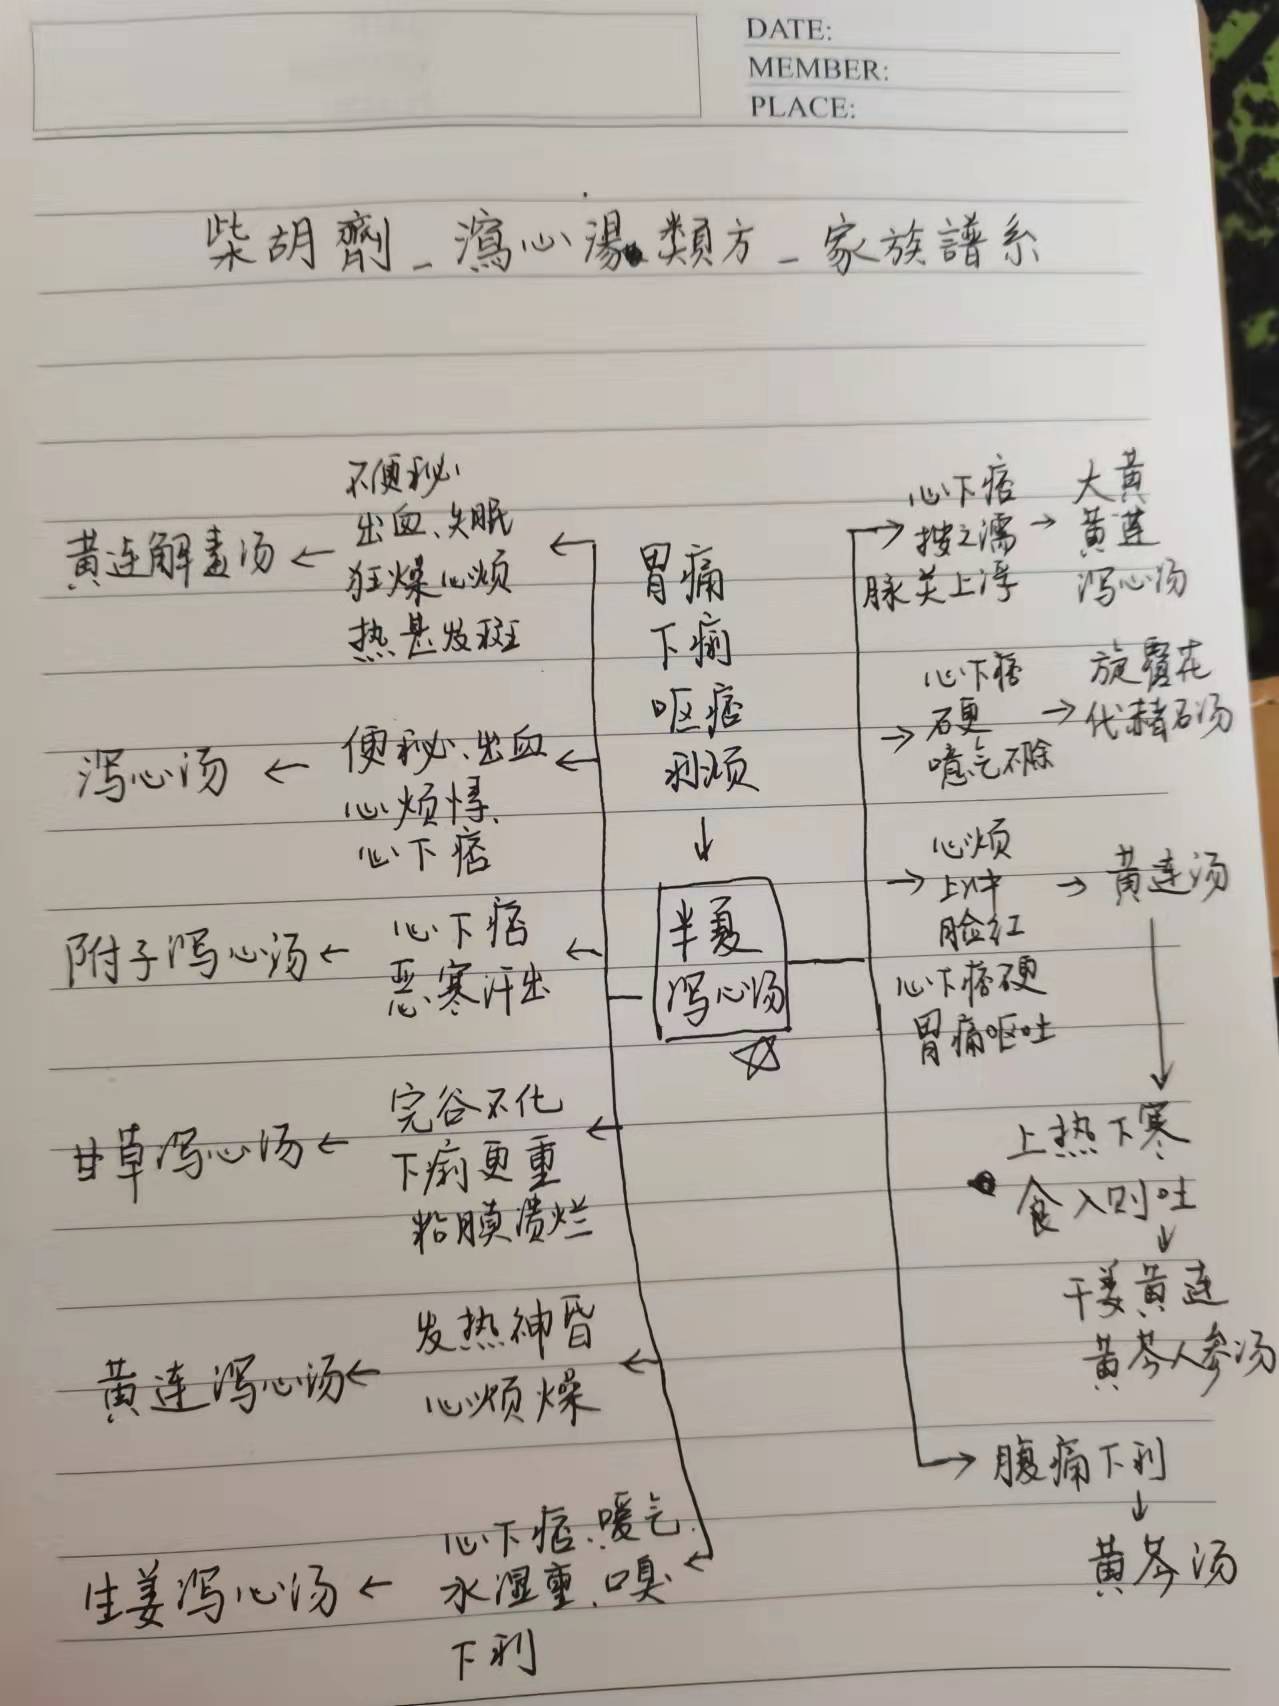 DATE:
MEMBER:
PLACE:
柴胡劑_瀉心湯類方_家族譜系
不便秘
出血、失眠
狂燥心烦
热甚发斑
黄连解毒汤
便秘、出血
心烦悸、
心下痞
泻心汤
心下痞
恶寒汗出
附子泻心汤
完谷不化
下痢更重
粘膜溃烂
甘草泻心汤
发热神昏
心烦燥
黄连泻心汤
心下痞、嗳气
水湿重、口臭
下利
生姜泻心汤
胃痛
下痢
呕痞
利烦
半夏
泻心汤
心下痞
按之濡
脉关上浮
大黄
黄莲
泻心汤
心下痞
硬
噫气不除
旋覆花
代赭石汤
心烦
上冲
脸红
心下痞硬
胃痛呕吐
黄连汤
上热下寒
食入则吐
干姜黄连
黄芩人参汤
腹痛下利
黄芩汤